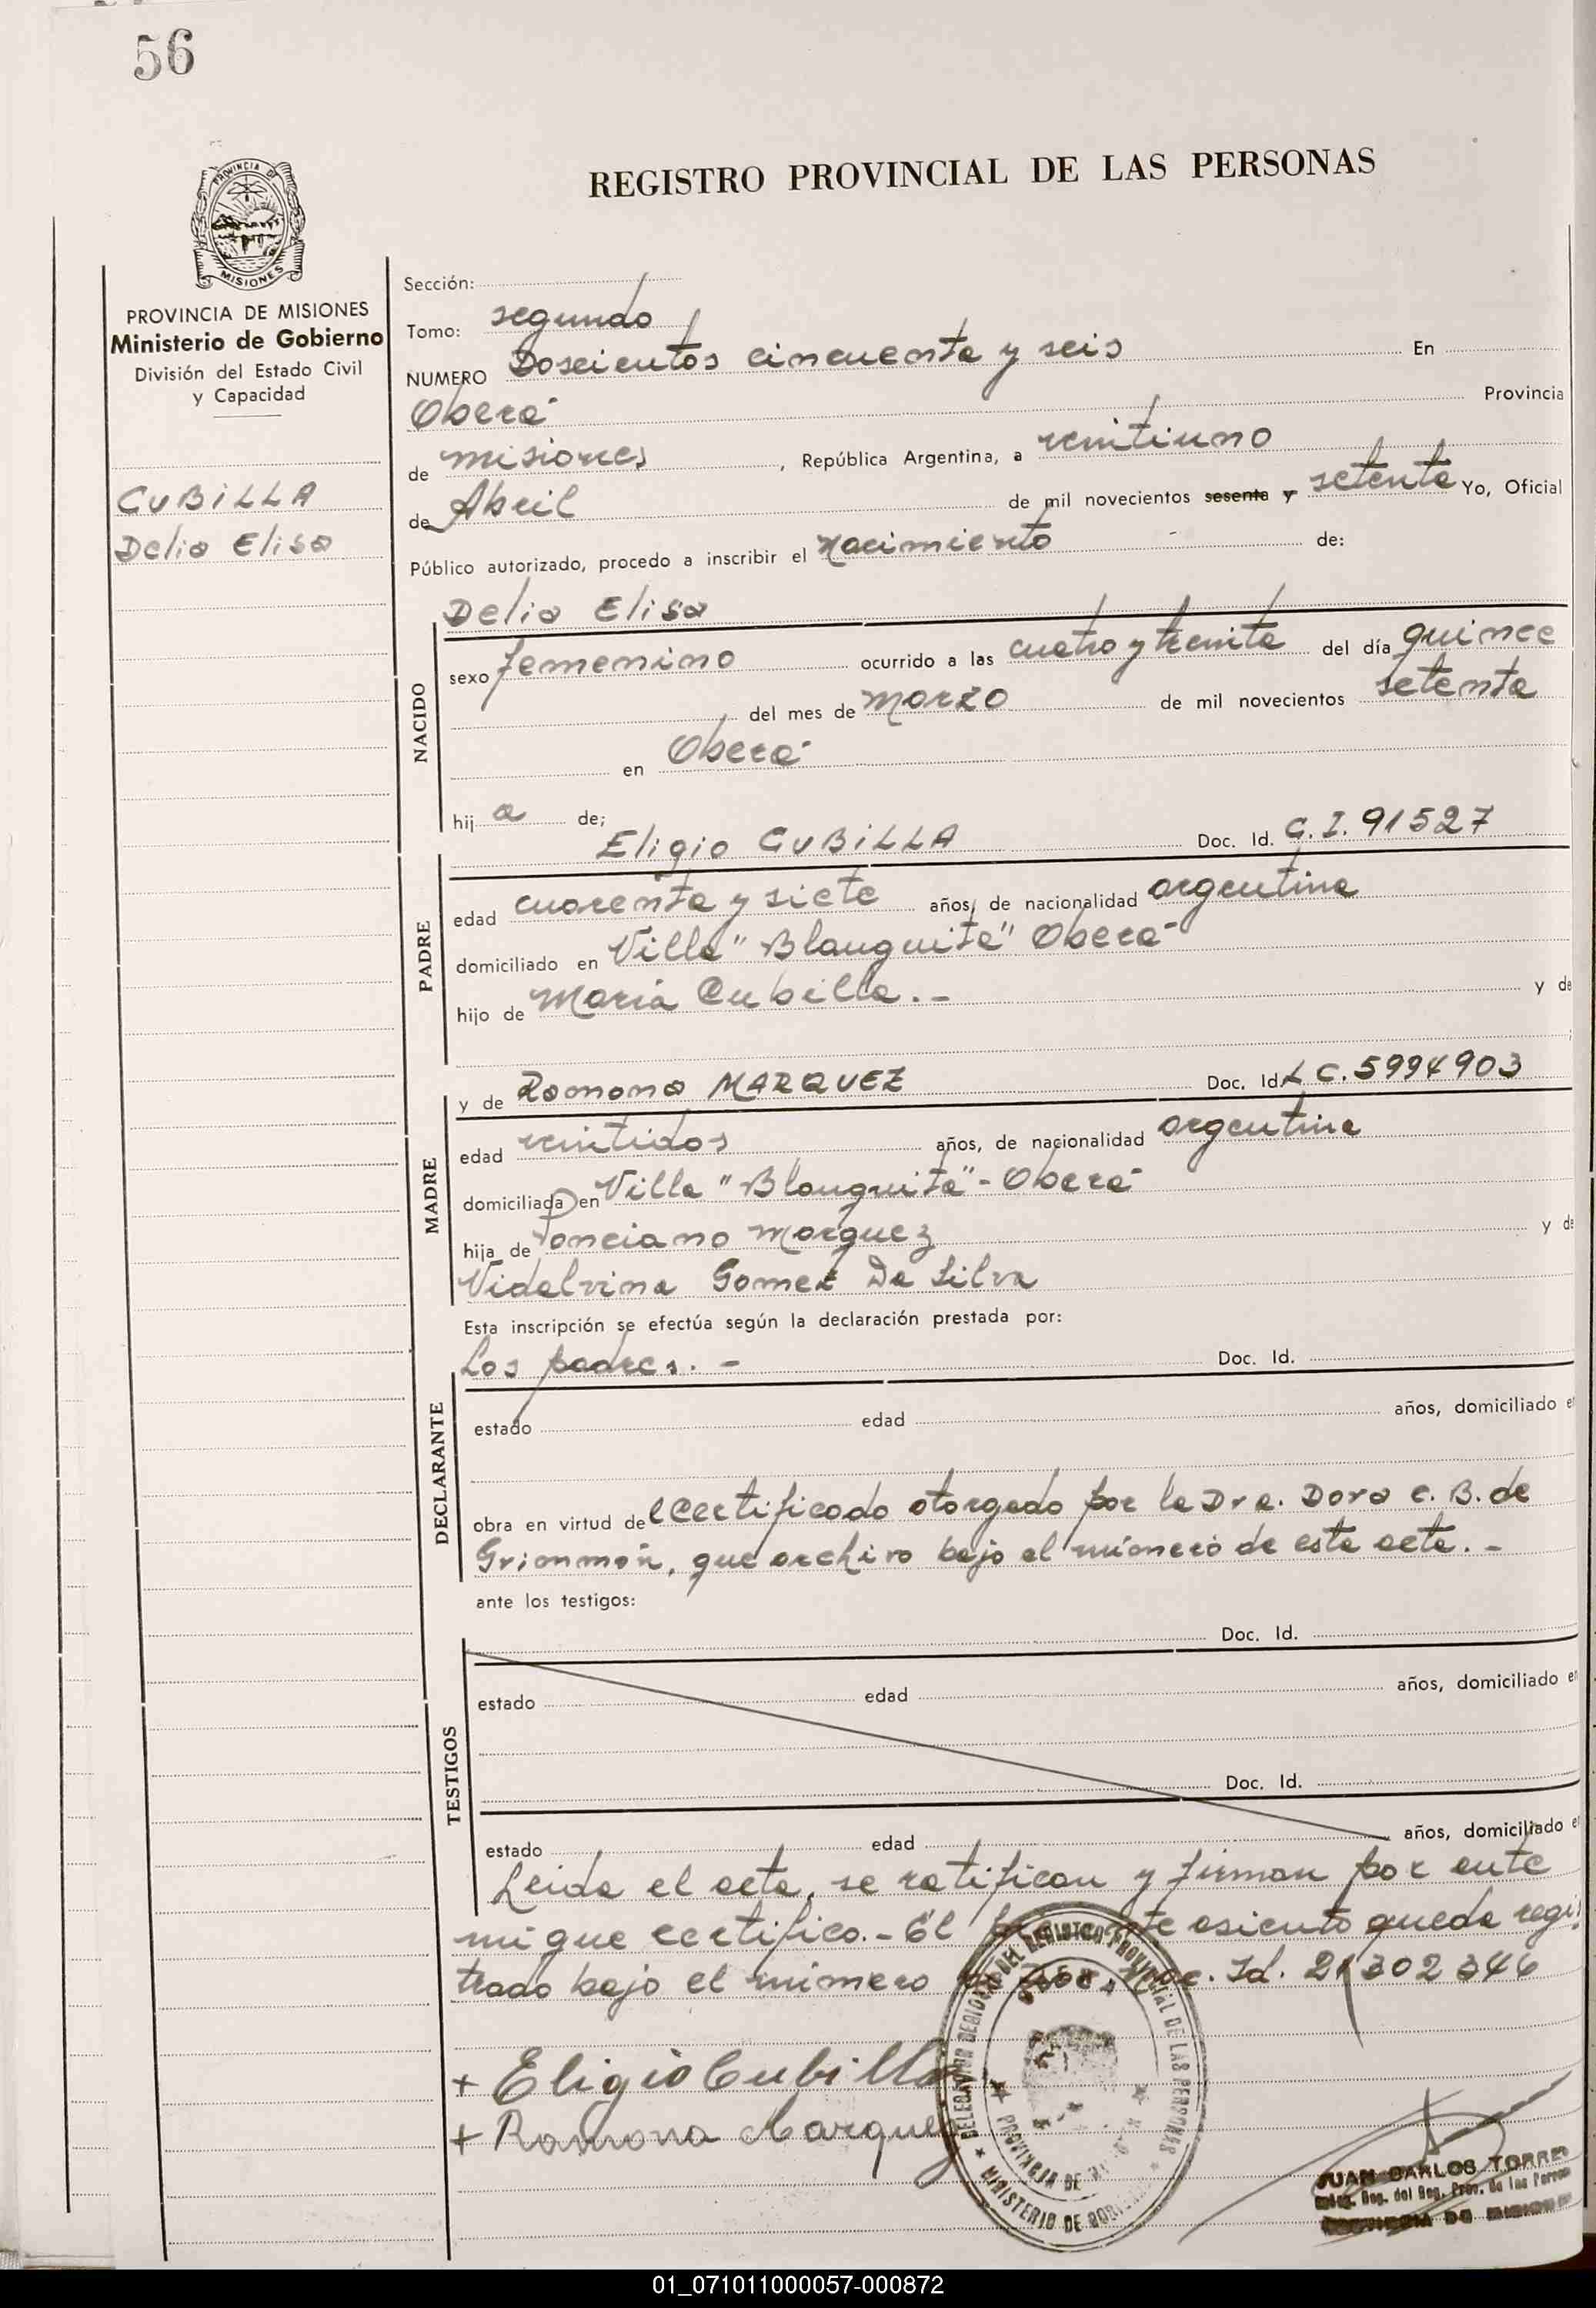 56
REGISTRO PROVINCIAL DE LAS PERSONAS
PROVINCIA DE
MISIONES
PROVINCIA DE MISIONES
Ministerio de Gobierno
División del Estado Civil
y Capacidad
CUBILLA
Delia Elisa
Sección:
Tomo: segundo
NUMERO Doscientos cincuenta y seis En
Oberá Provincia
de misiones, República Argentina, a veintiuno
de Abril de mil novecientos sesenta y setenta Yo, Oficial
Público autorizado, procedo a inscribir el nacimiento de:
Delia Elisa
NACIDO
sexo femenino ocurrido a las cuatro y treinta del día quince
del mes de marzo de mil novecientos setenta
en Oberá
hij a de;
Eligio CUBILLA Doc. Id. C.I. 91527
PADRE
edad cuarenta y siete años, de nacionalidad argentina
domiciliado en Villa "Blanquita" Oberá
hijo de María Cubilla.- y de
y de Ramona MARQUEZ Doc. Id. L C. 5994903
MADRE
edad veintidos años, de nacionalidad argentina
domiciliada en Villa "Blanquita" - Oberá
hija de Ponciano Marquez y de
Vidalvina Gomez Da Silva
Esta inscripción se efectúa según la declaración prestada por:
Los padres.- Doc. Id.
DECLARANTE
estado edad años, domiciliado e
obra en virtud del certificado otorgado por la Dra. Dora C. B. de
que archivo bajo el número de esta acta.-
ante los testigos:
Doc. Id.
TESTIGOS
estado edad años, domiciliado en
Doc. Id.
estado edad años, domiciliado e
Leida el acta, se ratifican y firman por ante
mi que certifico.- El asiento queda regis
trado bajo el número Doc. Id. 21302346
+ Eligio Cubilla
+ Ramona Marquez
PROVINCIA DE
MINISTERIO DE
JUAN CARLOS TORRE
01_071011000057-000872